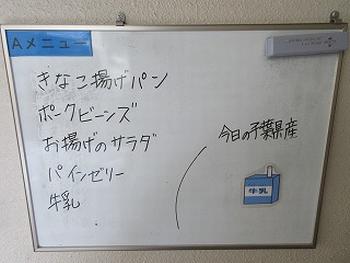 Aメニュー
きなこ揚げパン
ポークビーンズ
お揚げのサラダ
パインゼリー
牛乳
今日の千葉県産
牛乳